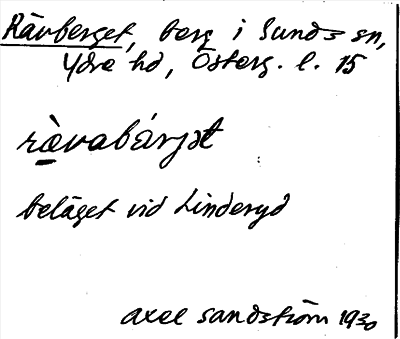 Rävberget, berg i Sunds sn,
Ydre hd, Österg. l. 15
rä̀vabárjət
beläget vid Linderyd
Axel Sandström 1930